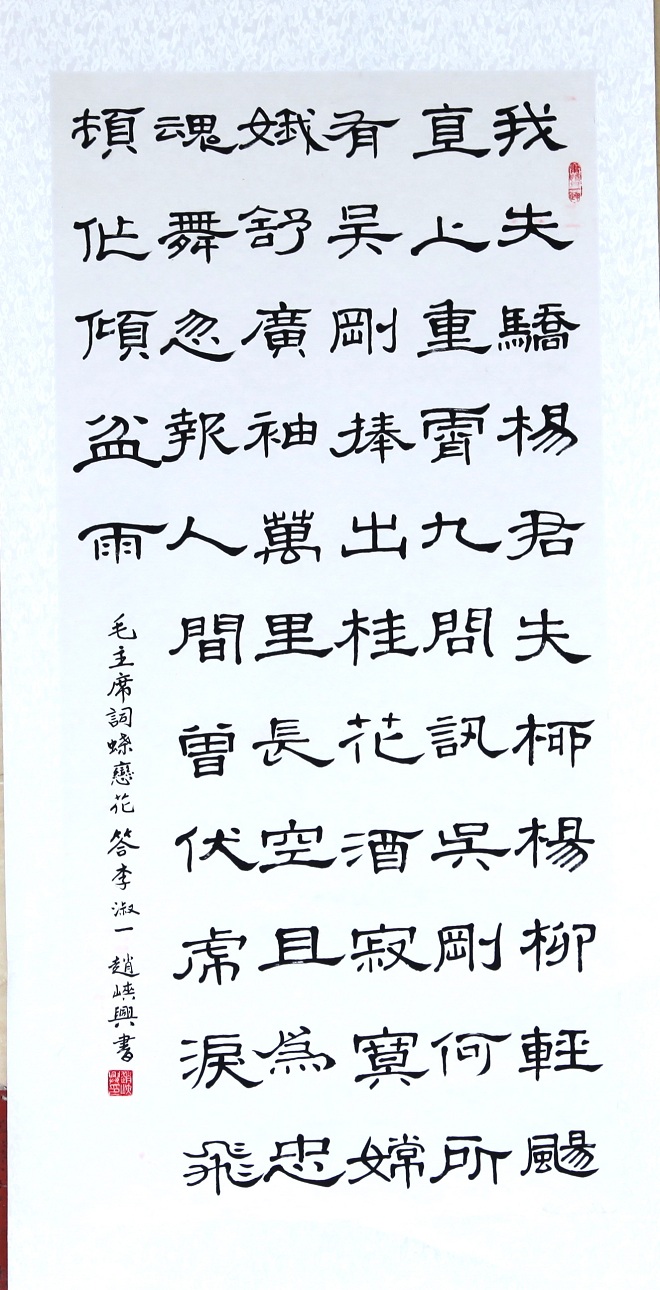 我失驕楊君失柳楊柳輕颺
直上重霄九問訊吳剛何所
有吳剛捧出桂花酒寂寞嫦
娥舒廣袖萬里長空且為忠
魂舞忽報人間曾伏虎淚飛
頓作傾盆雨
毛主席詞蝶戀花 答李淑一 趙峽興書